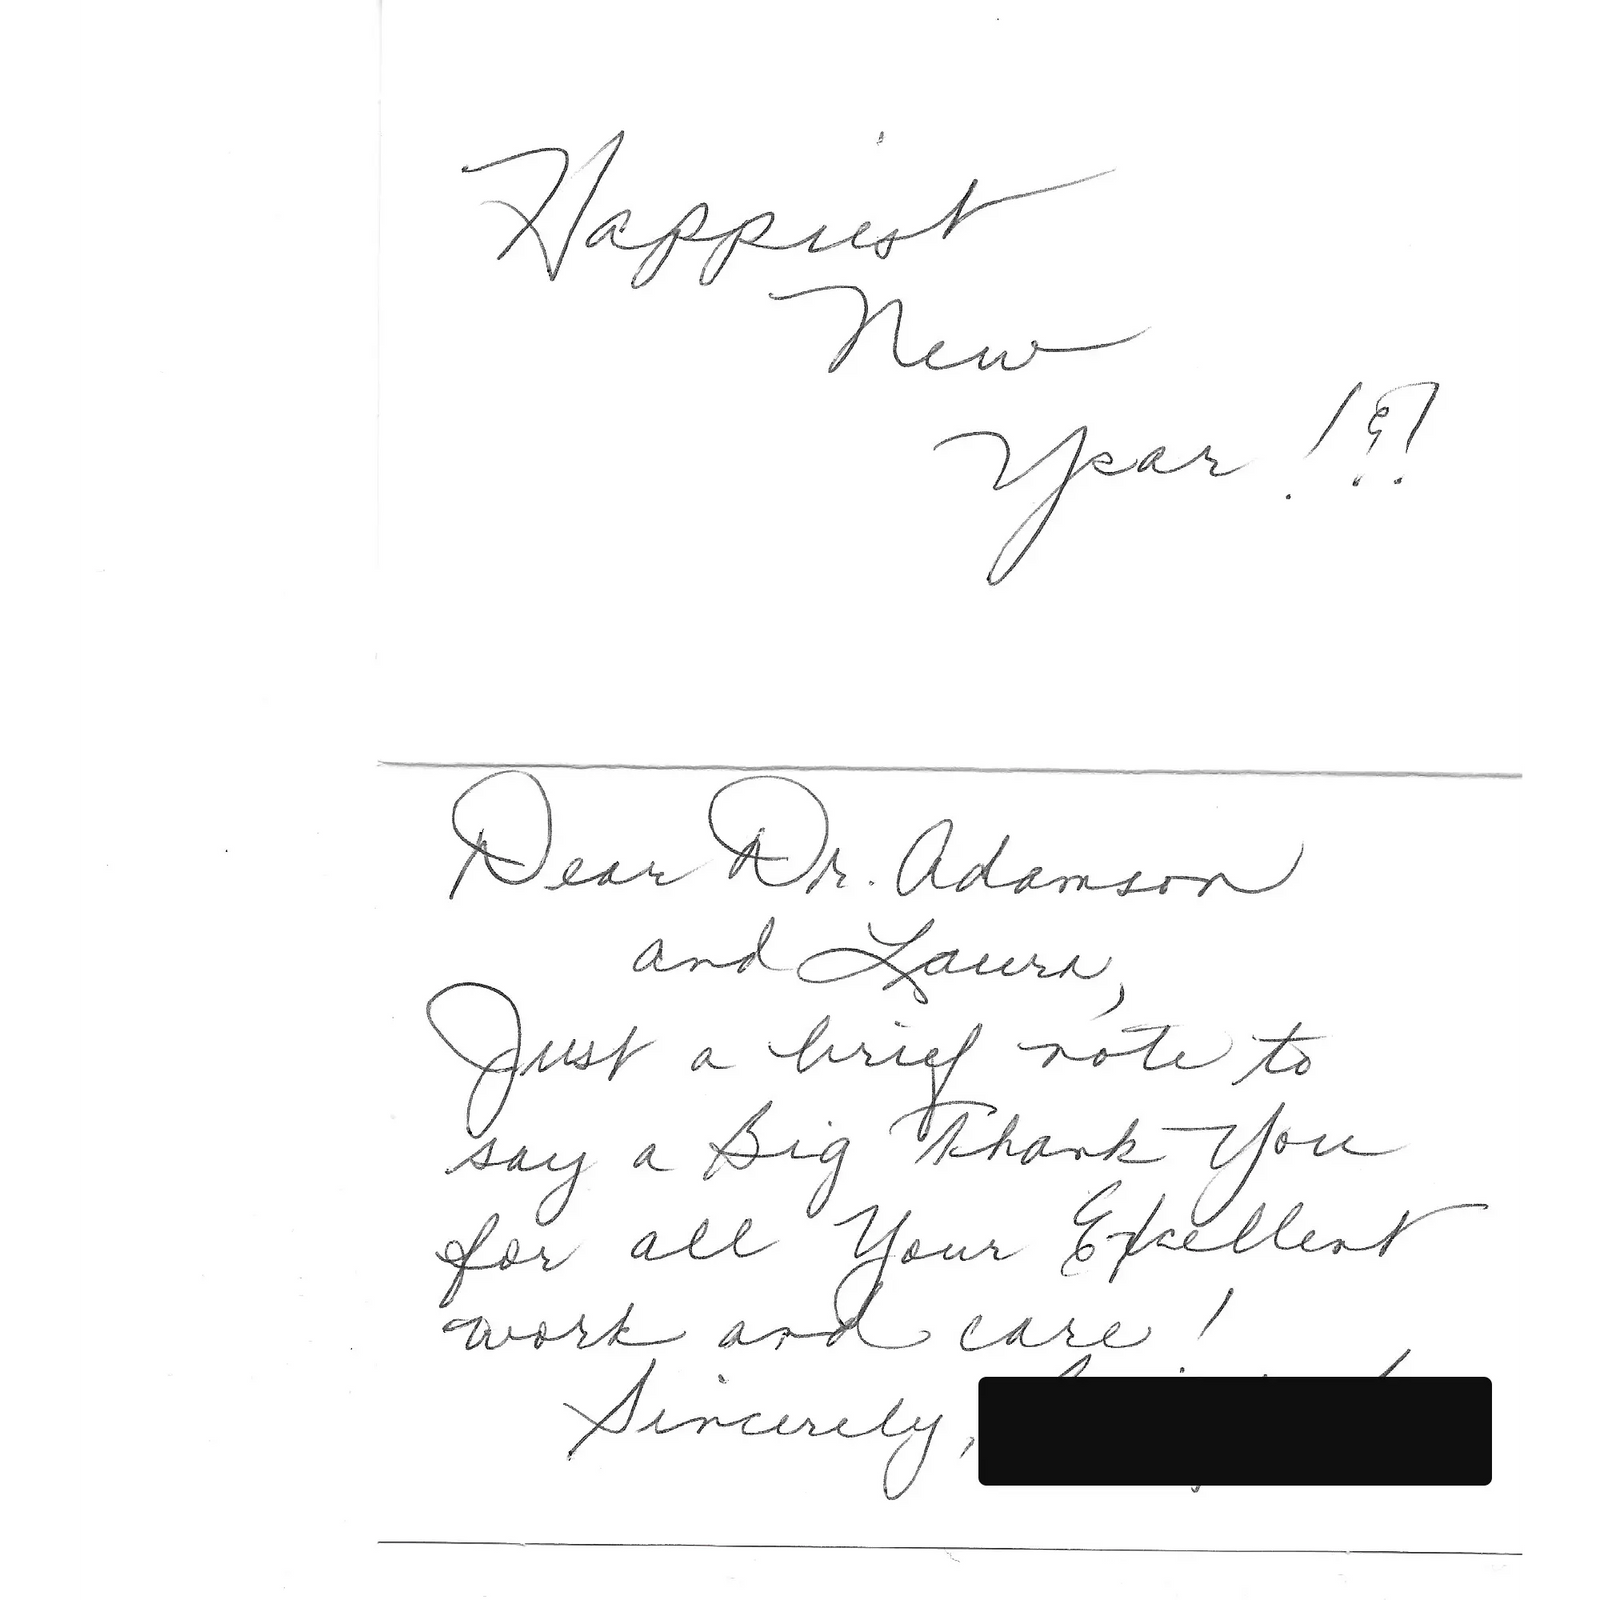 Happiest
New
Year!!!
Dear Dr. Adamson
and Laura,
Just a brief note to
say a Big Thank You
for all Your Excellent
work and care!
Sincerely,